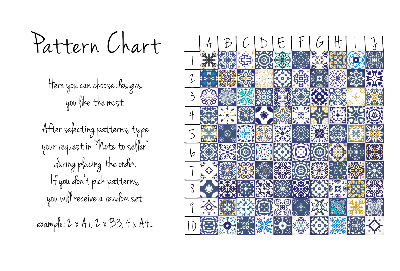 Pattern Chart
A B C D E F G H I J
Here you can choose designs
you like the most.
After selecting patterns, type
your request in "Note to seller"
during placing the order.
If you don't pick patterns,
you will receive a random set.
example: 2 x A1, 2 x B3, 4 x A4...
1
2
3
4
5
6
7
8
9
10